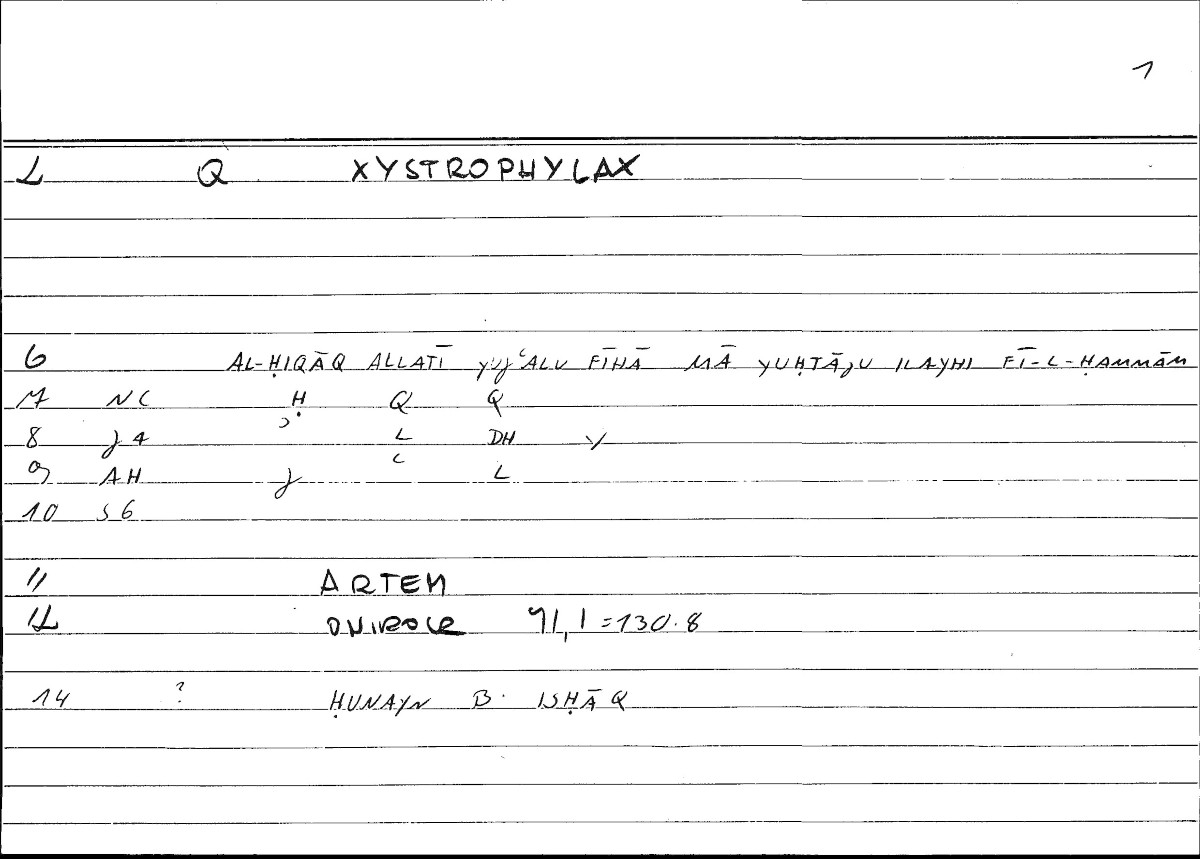 1
2 Q XYSTROPHYLAX
6 AL-ḤIQĀQ ALLATĪ YUJʿALU FĪHĀ MĀ YUḤTĀJU ILAYHI FĪ-L-ḤAMMĀM
7 NC Ḥ Q Q
8 J4 ʾ L DH Y
9 AH J ʿ L
10 S6
11 ARTEM
12 ONIROCR 91,1=130.8
14 ? ḤUNAYN B. ISḤĀQ